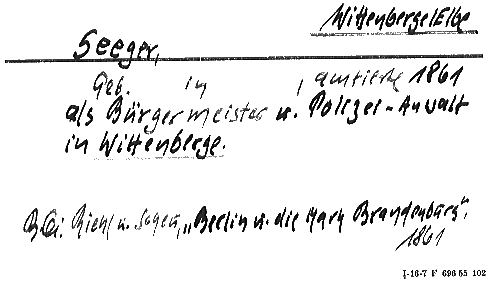 Wittenberge/Elbe
Seeger,
Geb. in , amtierte 1861
als Bürgermeister u. Polizei-Anwalt
in Wittenberge.
Riehl u. "Berlin u. die Mark Brandenburg",
1861
I-16-7 F 696 55 102